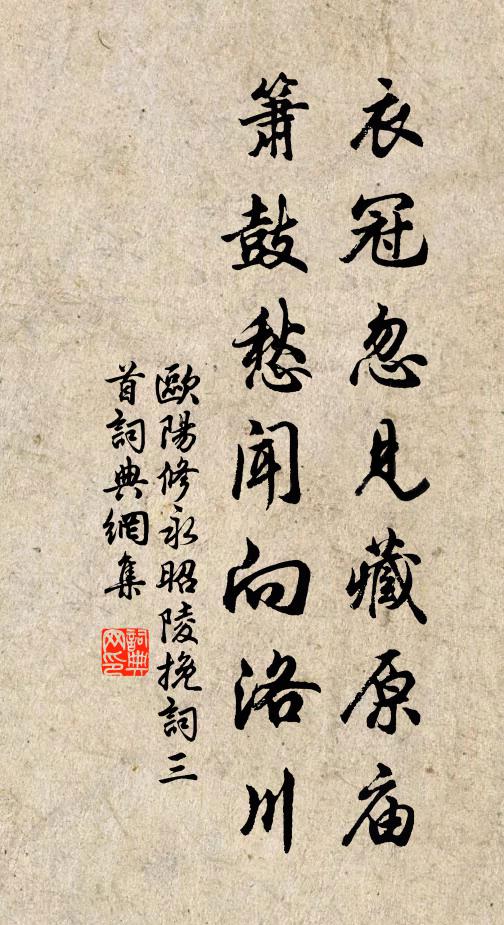 衣冠忽見藏原庙
簫鼓愁闻向洛川
歐陽修永昭陵挽詞三
首詞典網集
詞典
网印